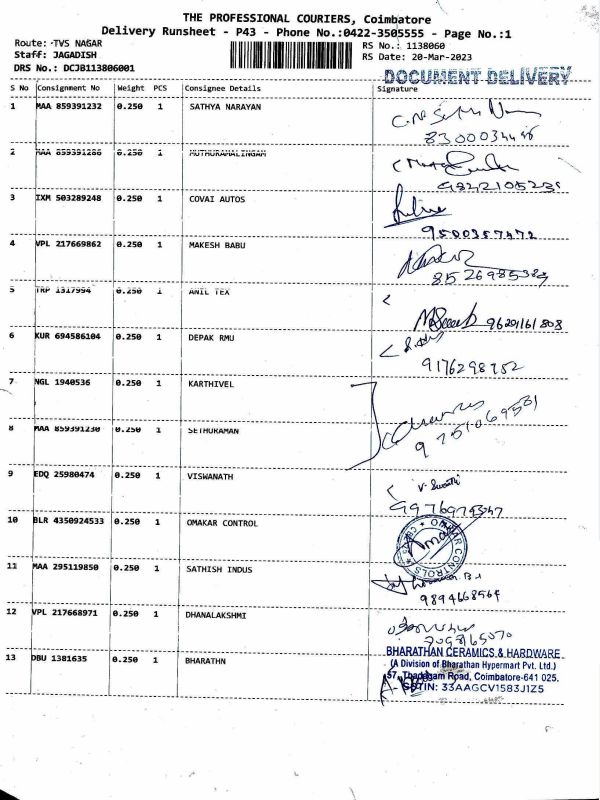 THE PROFESSIONAL COURIERS, Coimbatore
Delivery Runsheet - P43 - Phone No.:0422-3505555 - Page No.:1
Route: TVS NAGAR
Staff: JAGADISH
DRS No.: DCJB113806001
RS No.: 1138060
RS Date: 20-Mar-2023
DOCUMENT DELIVERY
S No Consignment No Weight PCS Consignee Details Signature
1 MAA 859391232 0.250 1 SATHYA NARAYAN
8300034448
2 MAA 859391286 0.250 1 MUTHURAMALINGAM
3 IXM 503289248 0.250 1 COVAI AUTOS
9500357472
4 VPL 217669862 0.250 1 MAKESH BABU
8526985384
5 TRP 1317994 0.250 1 ANIL TEX
9620161808
6 KUR 694586104 0.250 1 DEPAK RMU
9176298752
7 NGL 1940536 0.250 1 KARTHIVEL
8 MAA 859391230 0.250 1 SETHURAMAN
9751069501
9 EDQ 25980474 0.250 1 VISWANATH
V. Swathi
10 BLR 4350924533 0.250 1 OMAKAR CONTROL
OMKAR CONTROLS
11 MAA 295119850 0.250 1 SATHISH INDUS
9894668564
12 VPL 217668971 0.250 1 DHANALAKSHMI
13 DBU 1381635 0.250 1 BHARATHN
BHARATHAN CERAMICS & HARDWARE
(A Division of Bharathan Hypermart Pvt. Ltd.)
57, Thadagam Road, Coimbatore-641 025.
GSTIN: 33AAGCV1583J1Z5